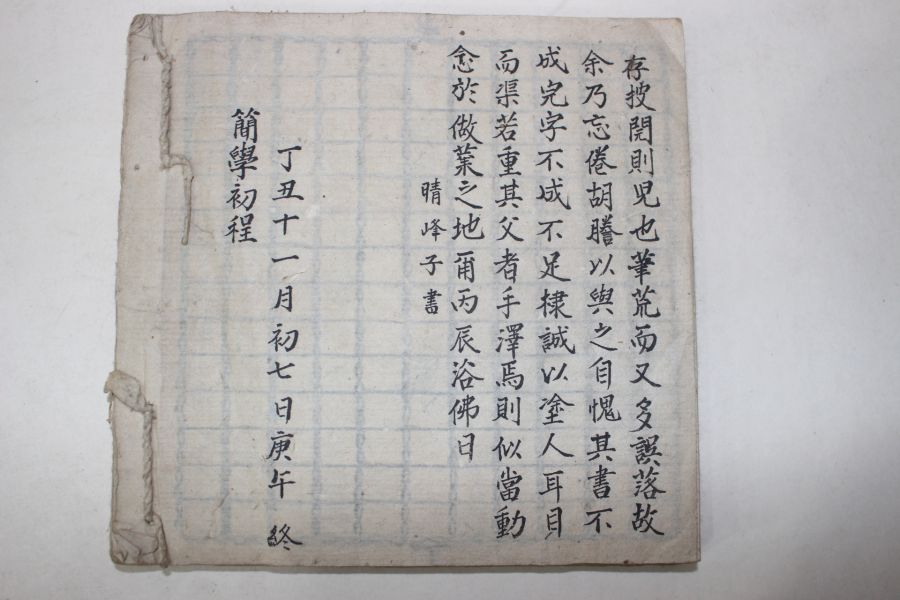 存披閱則児也筆荒而又多誤落故
余乃忘倦胡謄以與之自愧其書不
成完字不成不足捸誠以塗人耳目
而渠若重其父者手澤焉則似當動
念於做業之地爾丙辰浴佛日
晴峰子書
丁丑十一月初七日庚午 終
簡學初程